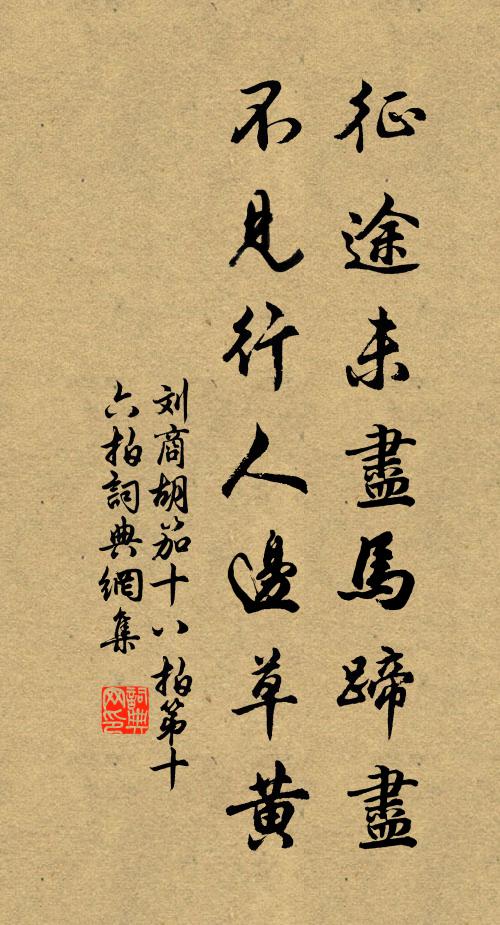 征途未盡馬蹄盡
不見行人邊草黃
刘商胡笳十八拍第十
六拍詞典網集
詞典
网印